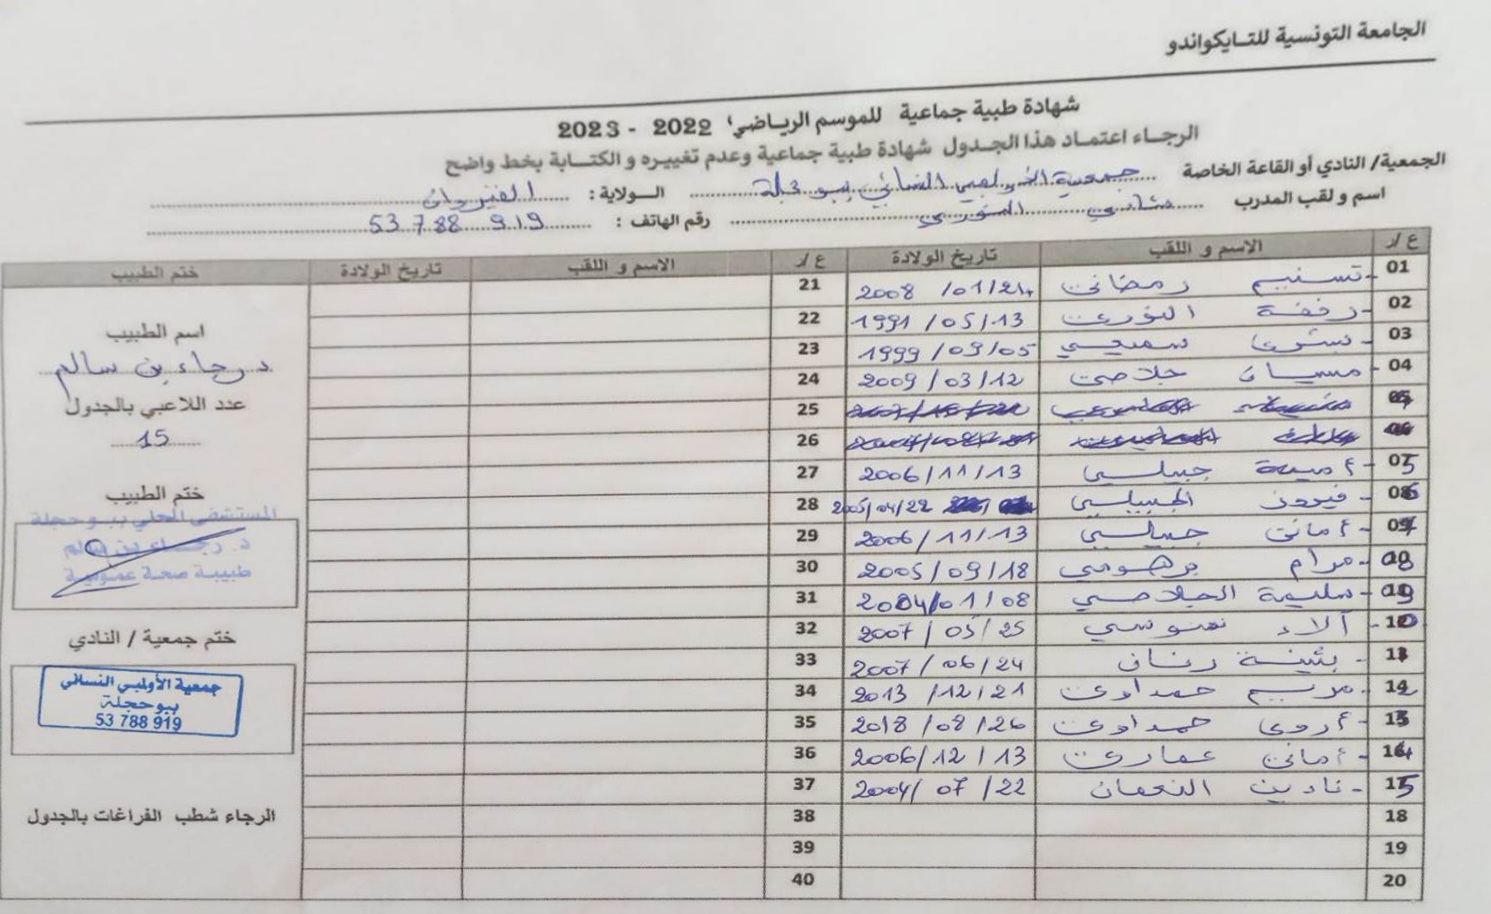 الجامعة التونسية للتـايكواندو
شهادة طبية جماعية للموسم الرياضي 2022 - 2023
الرجـاء اعتمـاد هذا الجـدول شهادة طبية جماعية وعدم تغييره و الكتـابة بخط واضح
الجمعية/ النادي أو القاعة الخاصة جمعية الأولمبي النسائي ببوحجلة الـولاية : القيروان
اسم و لقب المدرب رقم الهاتف : 53 788 919
ع/ر الاسم و اللقب تاريخ الولادة ع/ر الاسم و اللقب تاريخ الولادة ختم الطبيب
01 تسنيم رمضاني 2008 /01/24 21
02 1991/05/13 22
03 بشرى سميعي 1999/09/05 23
04 ميسان جلاصي 2009/03/12 24
25
26
5 أميمة جبيلي 2006/11/13 27
6 فيروز الجبيلي 2005/04/22 28
7 أماني جبيلي 2006/11/13 29
8 مرام برهومي 2005/09/18 30
9 سليمة الجلاصي 2004/01/08 31
10 آلاء 2007/05/25 32
11 بثينة 2007/06/24 33
12 مريم حمداوي 2013/12/21 34
13 أروى حمداوي 2018/08/26 35
14 أماني عماري 2006/12/13 36
15 نادين النعمان 2004/07/22 37
18 38
19 39
20 40
اسم الطبيب
د. رجاء بن سالم
عدد اللاعبي بالجدول
15
ختم الطبيب
المستشفى المحلي ببوحجلة
د. رجـاء بن سالم
طبيبة صحة عمومية
ختم جمعية / النادي
جمعية الأولمبي النسائي
ببوحجلة
53 788 919
الرجاء شطب الفراغات بالجدول